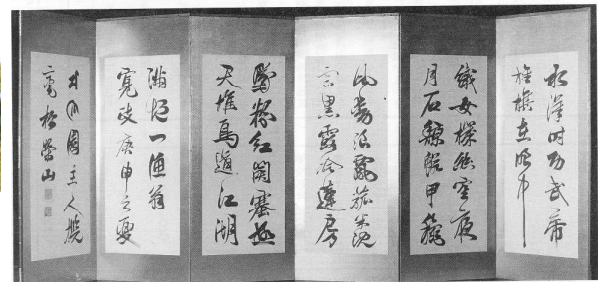 水漢時功武帝
旌旗在眼中
織女機絲虛夜
月石鯨鱗甲
風波飄菰米沈
雲黑露冷蓮房
墜粉紅關塞極
天唯鳥道江湖
滿地一漁翁
寛政庚申之夏
園主人
山